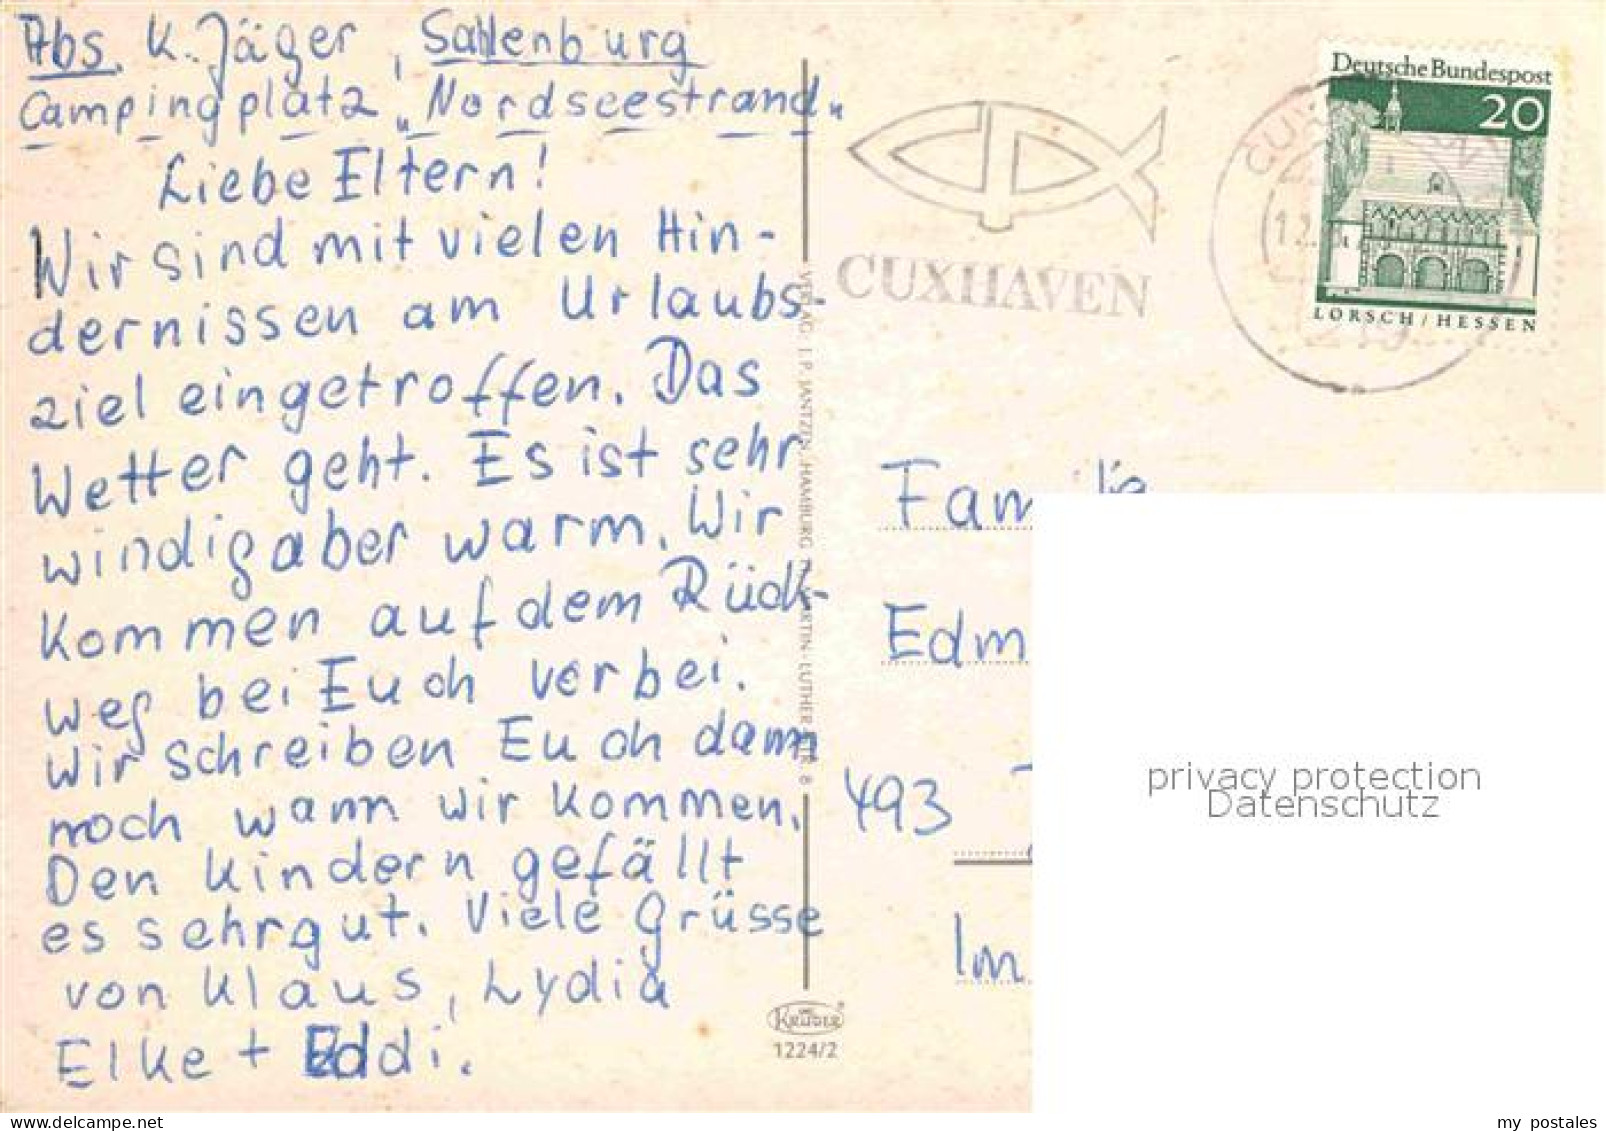 Abs. K. Jäger, Sahlenburg
Campingplatz „Nordseestrand"
Liebe Eltern!
Wir sind mit vielen Hin-
dernissen am Urlaubs-
ziel eingetroffen. Das
Wetter geht. Es ist sehr
windig aber warm. Wir
kommen auf dem Rück-
weg bei Euch vorbei.
Wir schreiben Euch dann
noch wann wir kommen.
Den Kindern gefällt
es sehr gut. Viele Grüsse
von Klaus, Lydia
Elke + Eddi.
VERLAG: J. P. JANTZEN, HAMBURG MARTIN-LUTHER STR. 8
KRÜGER
1224/2
CUXHAVEN
Deutsche Bundespost
20
LORSCH / HESSEN
Familie
Edm
493
Im
privacy protection
Datenschutz
my postales